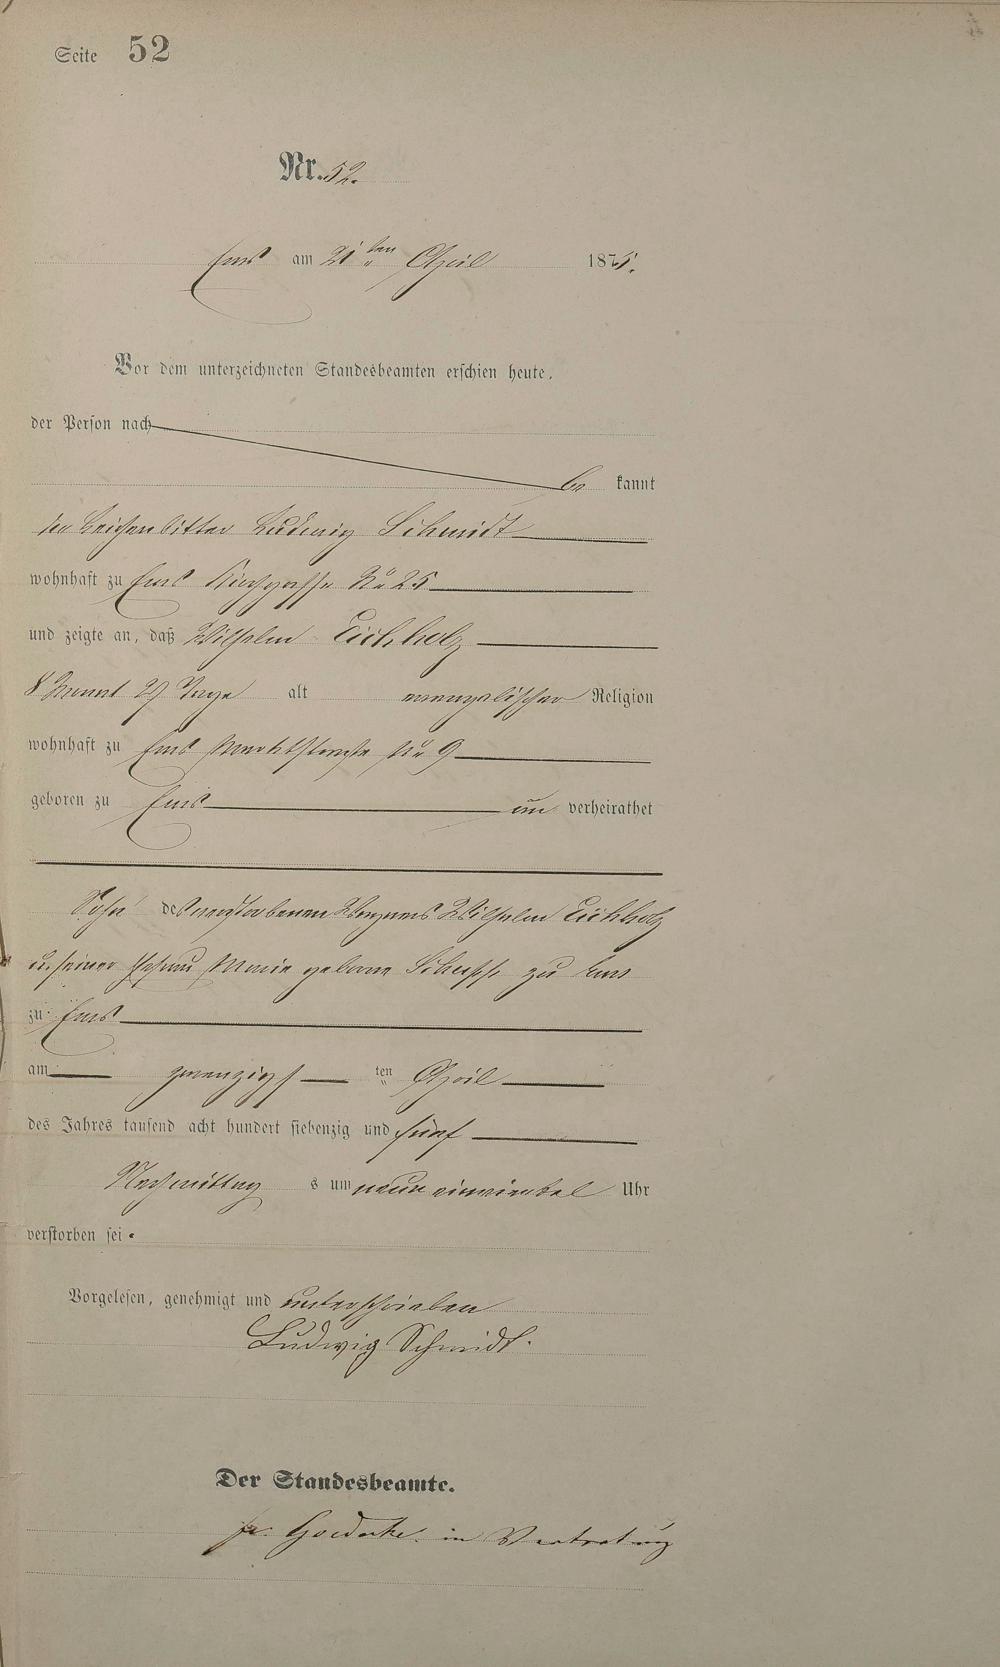 Seite 52
Nr. 52.
Ems am 21 ten April 1875.
Vor dem unterzeichneten Standesbeamten erschien heute,
der Person nach
be kannt
der Leichenbitter Ludwig Schmidt
wohnhaft zu Ems Kirchgasse No 25
und zeigte an, daß Wilhelm Eichholz
8 Monat 29 Tage alt evangelischer Religion
wohnhaft zu Ems Marktstraße No 9
geboren zu Ems un verheirathet
Sohn des verstorbenen Wilhelm Eichholz
u. seiner Ehefrau Marie geborne zu Ems
zu Ems
am zwanzigs ten April
des Jahres tausend acht hundert siebenzig und fünf
Nachmittag s um neun einviertel Uhr
verstorben sei.
Vorgelesen, genehmigt und unterschrieben
Ludwig Schmidt.
Der Standesbeamte.
in Vertretung